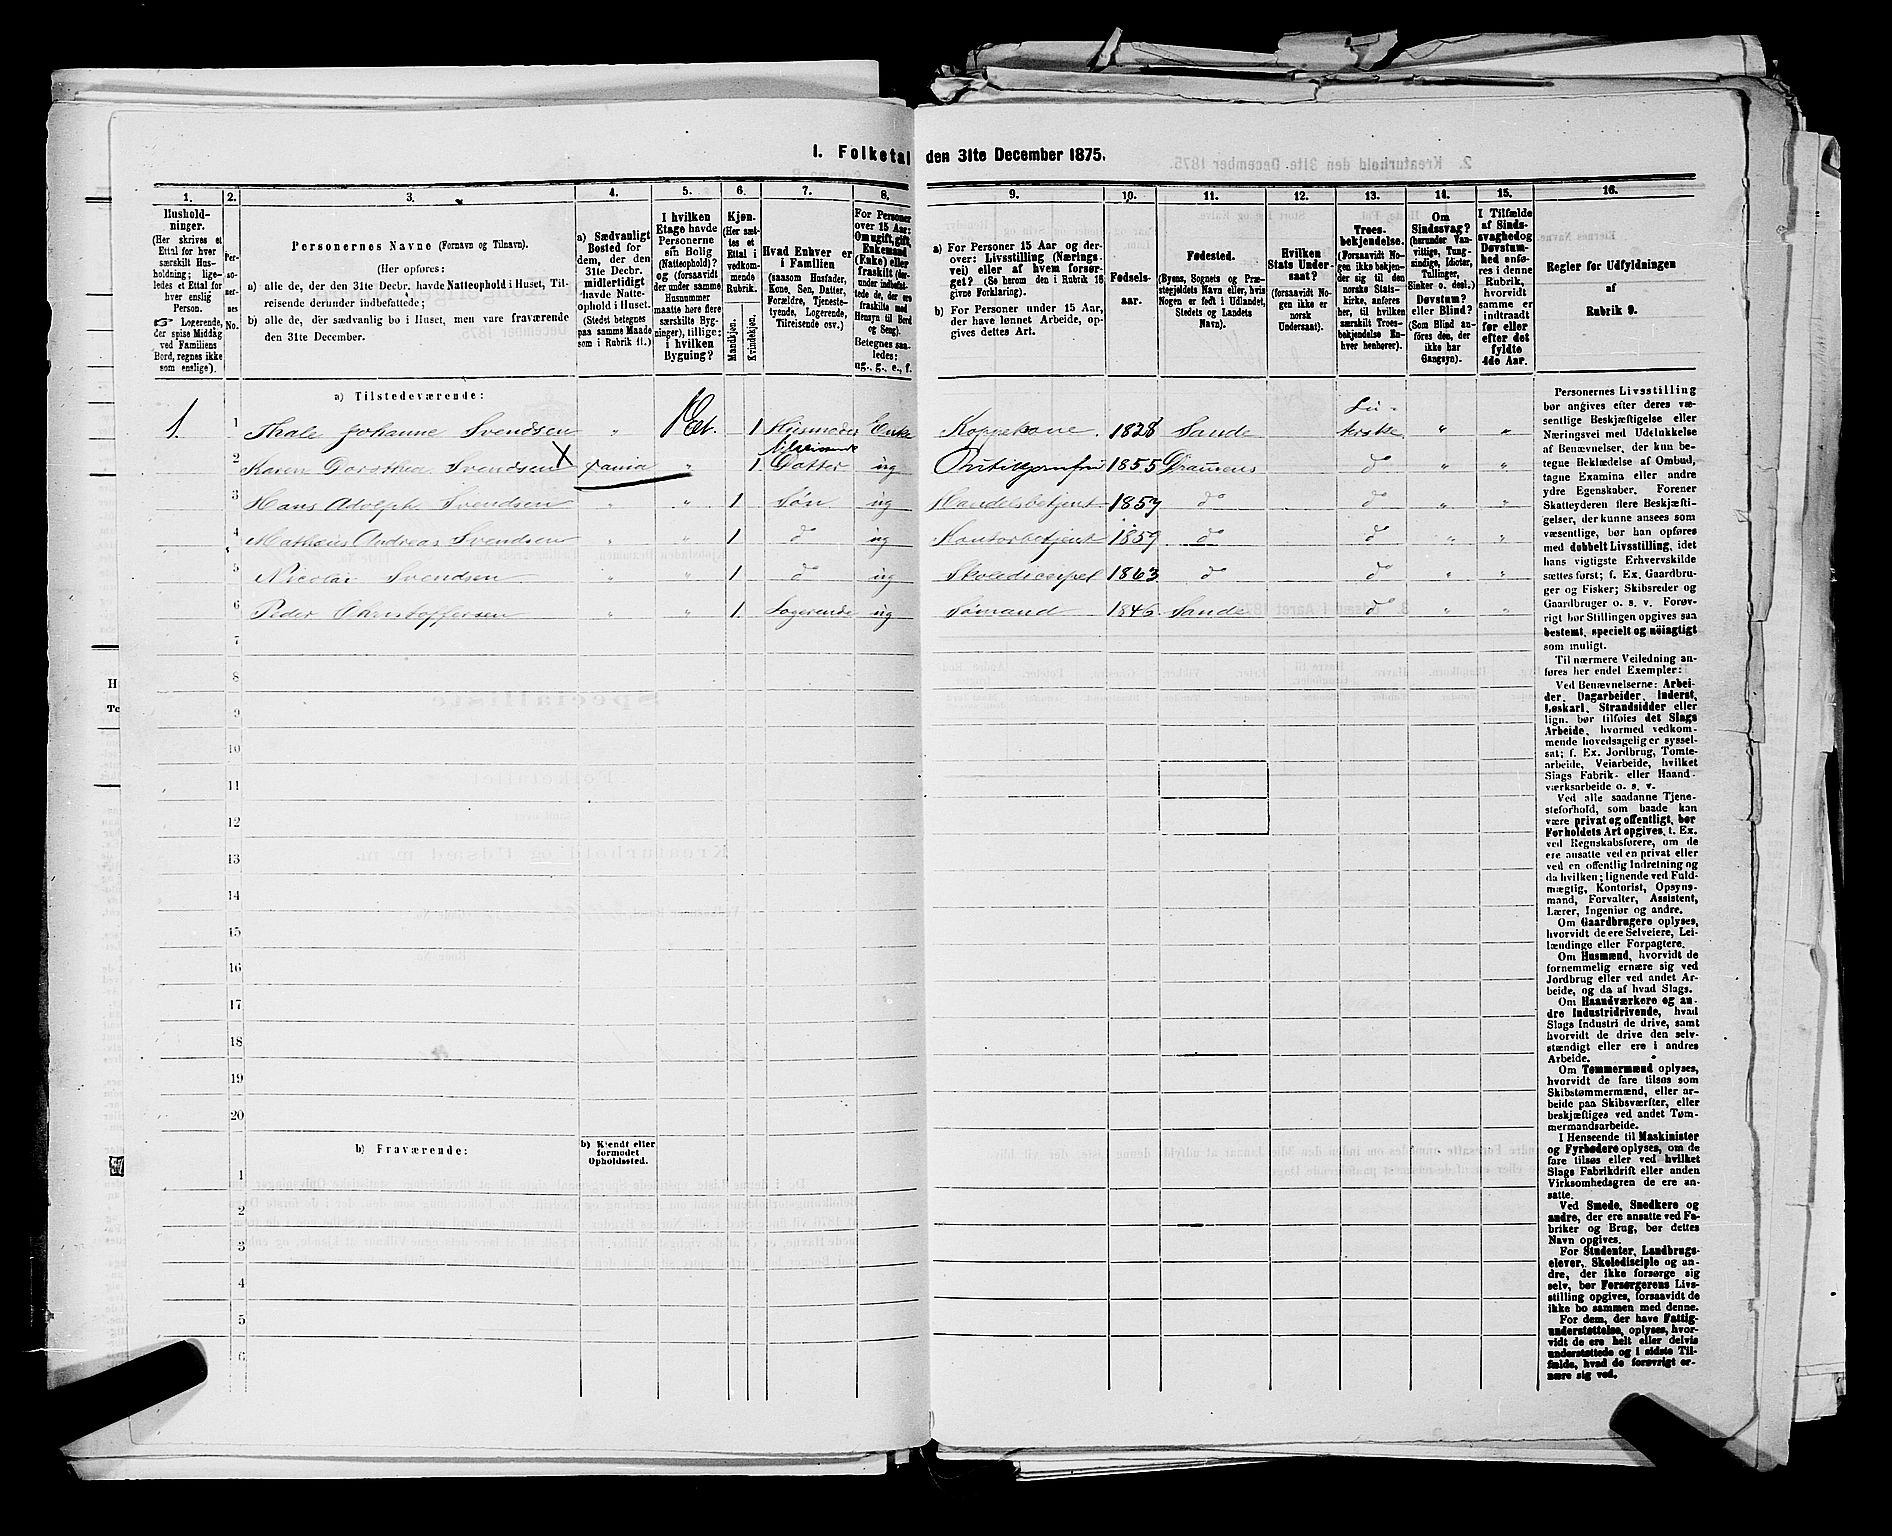 1. Folketal den 31te December 1875.
1. 2. 3. 4. 5. 6. 7. 8. 9. 10. 11. 12. 13. 14. 15. 16.
Hushold-
ninger.
(Her skrives et
Ettal for hver
særskilt Hus-
holdning; lige-
ledes et Ettal for
hver enslig
Person.
☞ Logerende,
der spise Middag
ved Familiens
Bord, regnes ikke
som enslige).
Per-
so-
ner-
nes
No.
Personernes Navne (Fornavn og Tilnavn).
(Her opføres:
a) alle de, der den 31te Decbr. havde Natteophold i Huset, Til-
reisende derunder indbefattede;
b) alle de, der sædvanlig bo i Huset, men vare fraværende
den 31te December.
a) Sædvanligt
Bosted for
dem, der den
31te Decbr.
midlertidigt
havde Natte-
ophold i Huset.
(Stedet betegnes
paa samme Maade
som i Rubrik 11.)
I hvilken
Etage havde
Personerne
sin Bolig
(Natteophold)?
og (forsaavidt
der under samme
Husnummer
maatte høre flere
særskilte Byg-
ninger), tillige:
i hvilken
Bygning?
Kjøn.
(Her sæt-
tes et
Ettal i
vedkom-
mende
Rubrik.
Mandkjøn.
Kvindekjøn.
Hvad Enhver er
i Familien
(saasom Husfader,
Kone, Søn, Datter,
Forældre, Tjeneste-
tyende, Logerende,
Tilreisende osv.)
For Personer
over 15 Aar:
Om ugift, gift,
Enkemand
(Enke) eller
fraskilt (her-
under indbefat-
tede de, der ere
fraskilte med
Hensyn til Bord
og Seng).
Betegnes saa-
ledes:
ug., g., e., f.
a) For Personer 15 Aar og der-
over: Livsstilling (Nærings-
vei) eller af hvem forsør-
get? (Se herom den i Rubrik 16
givne Forklaring).
b) For Personer under 15 Aar,
der have lønnet Arbeide, op-
gives dettes Art.
Fødsels-
aar.
Fødested.
(Byens, Sognets og Præ-
stegjeldets Navn eller, hvis
Nogen er født i Udlandet,
Stedets og Landets
Navn).
Hvilken
Stats Under-
saat?
(forsaavidt No-
gen ikke er
norsk
Undersaat).
Troes-
bekjendelse.
(Forsaavidt No-
gen ikke bekjen-
der sig til den
norske Stats-
kirke, anføres
her, til hvilken
særskilt Troes-
bekjendelse En-
hver henhører).
Om
Sindssvag?
(herunder Van-
vittige, Tung-
sindige, Idioter,
Tullinger,
Sinker o. desl.)
Døvstum?
eller Blind?
(Som Blind an-
føres den, der
ikke har
Gangsyn).
I Tilfælde
af Sinds-
svaghed og
Døvstum-
hed anfø-
res i denne
Rubrik,
hvorvidt
samme er
indtraadt
før eller
efter det
fyldte
4de Aar.
Regler for Udfyldningen
af
Rubrik 9.
a) Tilstedeværende:
1. 1 Thale Johanne Svendsen „ 1 Et. 1 Husmoder Enke Koppekone. 1828 Sande Lu-
terske „ „
2 Karen Dorothea Svendsen X 1 Datter ug 1855 Dramens do „ „
3 Hans Adolph Svendsen „ „ 1 Søn ug Handelsbetjent 1857 do do „ „
4 Mathæus Andreas Svendsen „ „ 1 do ug Kontorbetjent 1859 do do „ „
5 Nicolai Svendsen „ „ 1 do ug Skoledicipel 1863 do do „ „
6 Peder Christoffersen „ „ 1. Logerende ug Sømand 1846 Sande do „ „
7
8
9
10
11
12
13
14
15
16
17
18
19
20
b) Fraværende:
b) Kjendt eller
formodet
Opholdssted.
1
2
3
4
5
6
Personernes Livsstilling
bør angives efter deres væ-
sentlige Beskjæftigelse eller
Næringsvei med Udelukkelse
af Benævnelser, der kun be-
tegne Beklædelse af Ombud,
tagne Examina eller andre
ydre Egenskaber. Forener
Skatteyderen flere Beskjæfti-
gelser, der kunne ansees som
væsentlige, bør han opføres
med dobbelt Livsstilling, idet
hans vigtigste Erhvervskilde
sættes først; f. Ex. Gaardbru-
ger og Fisker; Skibsreder og
Gaardbruger o. s. v. Forøv-
rigt bør Stillingen opgives saa
bestemt, specielt og nøiagtigt
som muligt.
Til nærmere Veiledning an-
føres her endel Exempler:
Ved Benævnelserne: Arbei-
der, Dagarbeider, Inderst,
Løskarl, Strandsidder eller
lign. bør tilføies det Slags
Arbeide, hvormed vedkom-
mende hovedsagelig er syssel-
sat; f. Ex. Jordbrug, Tomte-
arbeide, Veiarbeide, hvilket
Slags Fabrik- eller Haand-
værksarbeide o. s. v.
Ved alle saadanne Tjene-
steforhold, som baade kan
være privat og offentligt, bør
Forholdets Art opgives, t. Ex.
ved Regnskabsførere, om de
ere ansatte ved en privat eller
ved en offentlig Indretning og
da hvilken; lignende ved Fuld-
mægtig, Kontorist, Opsyns-
mand, Forvalter, Assistent,
Lærer, Ingeniør og andre.
Om Gaardbrugere oplyses,
hvorvidt de ere Selveiere, Lei-
lændinge eller Forpagtere.
Om Husmænd, hvorvidt de
fornemmelig ernære sig ved
Jordbrug eller ved andet Ar-
beide, og da af hvad Slags.
Om Haandværkere og an-
dre Industridrivende, hvad
Slags Industri de drive, samt
hvorvidt de drive den selv-
stændigt eller ere i andres
Arbeide.
Om Tømmermænd oplyses,
hvorvidt de fare tilsøs som
Skibstømmermænd, eller ar-
beide paa Skibsværfter, eller
beskjæftiges ved andet Tøm-
mermandsarbeide.
I Henseende til Maskinister
og Fyrbødere oplyses, om de
fare tilsøs eller ved hvilket
Slags Fabrikdrift eller anden
Virksomhedsgren de ere an-
satte.
Ved Smede, Snedkere og
andre, der ere ansatte ved Fa-
briker og Brug, bør dettes
Navn opgives.
For Studenter, Landbrugs-
elever, Skoledisciple og an-
dre, der ikke forsørge sig
selv, bør Forsørgerens Livs-
stilling opgives, forsaavidt de
ikke bo sammen med denne.
For dem, der have Fattig-
understøttelse, oplyses, hvor-
vidt de ere helt eller delvis
understøttede og i sidste Til-
fælde, hvad de forøvrigt er-
nære sig ved.